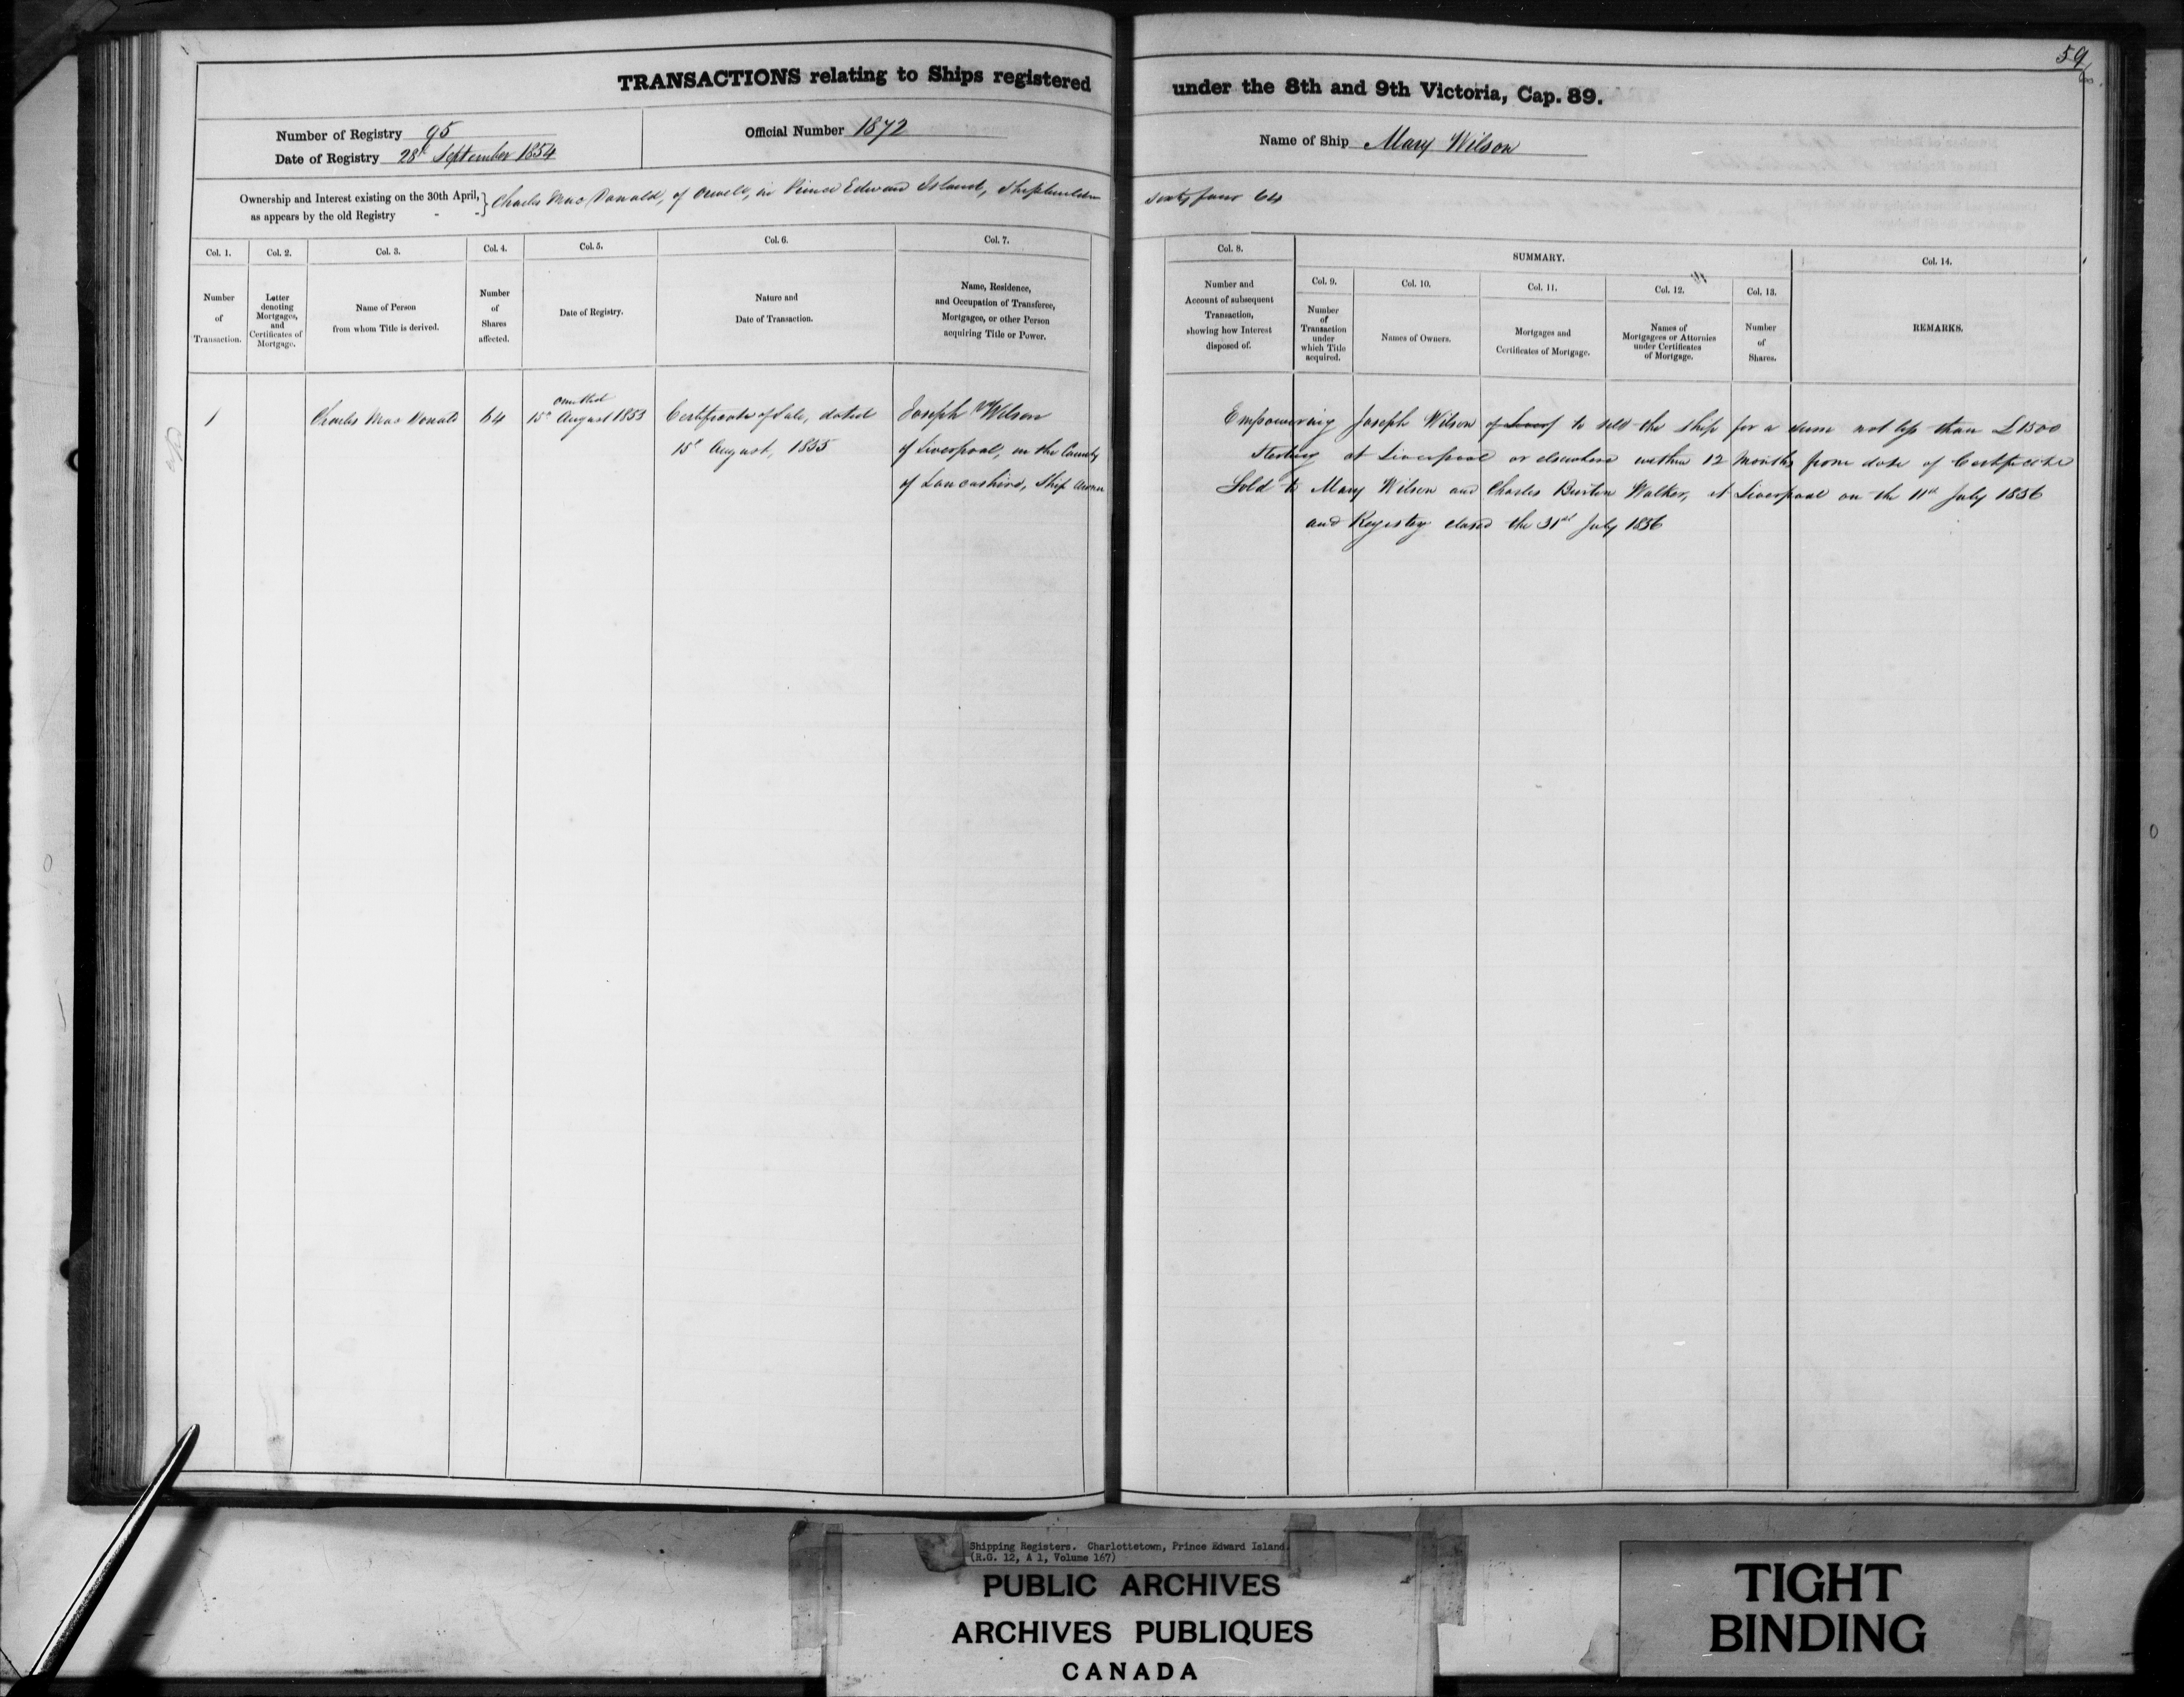 59
TRANSACTIONS relating to Ships registered under the 8th and 9th Victoria, Cap. 89.
Number of Registry 95
Date of Registry 28th September 1854
Official Number 1872
Name of Ship Mary Wilson
Ownership and Interest existing on the 30th April, as appears by the old Registry - - } Charles MacDonald, of Orwell, in Prince Edward Island, Shipbuilder sixty four 64
Col. 1.
Number
of
Transaction.
Col. 2.
Letter
denoting
Mortgages,
and
Certificates of
Mortgage.
Col. 3.
Name of Person
from whom Title is derived.
Col. 4.
Number
of
Shares
affected.
Col. 5.
Date of Registry.
Col. 6.
Nature and
Date of Transaction.
Col. 7.
Name, Residence,
and Occupation of Transferee,
Mortgagee, or other Person
acquiring Title or Power.
Col. 8.
Number and
Account of subsequent
Transaction,
showing how Interest
disposed of.
SUMMARY.
Col. 9.
Number
of
Transaction
under
which Title
acquired.
Col. 10.
Names of Owners.
Col. 11.
Mortgages and
Certificates of Mortgage.
Col. 12.
Names of
Mortgagees or Attornies
under Certificates
of Mortgage.
Col. 13.
Number
of
Shares.
Col. 14.
REMARKS.
1
Charles MacDonald
64
omitted
15th August 1853
Certificate of Sale, dated
15th August, 1855
Joseph Wilson
of Liverpool, in the County
of Lancashire, Ship Owner
Empowering Joseph Wilson of Liverp to sell the Ship for a sum not less than £1500
Sterling at Liverpool or elsewhere within 12 months from date of Certificate
Sold to Mary Wilson and Charles Burton Walker, at Liverpool on the 11th July 1856
and Registry closed the 31st July 1856
Shipping Registers. Charlottetown, Prince Edward Island.
(R.G. 12, A 1, Volume 167)
PUBLIC ARCHIVES
ARCHIVES PUBLIQUES
CANADA
TIGHT
BINDING